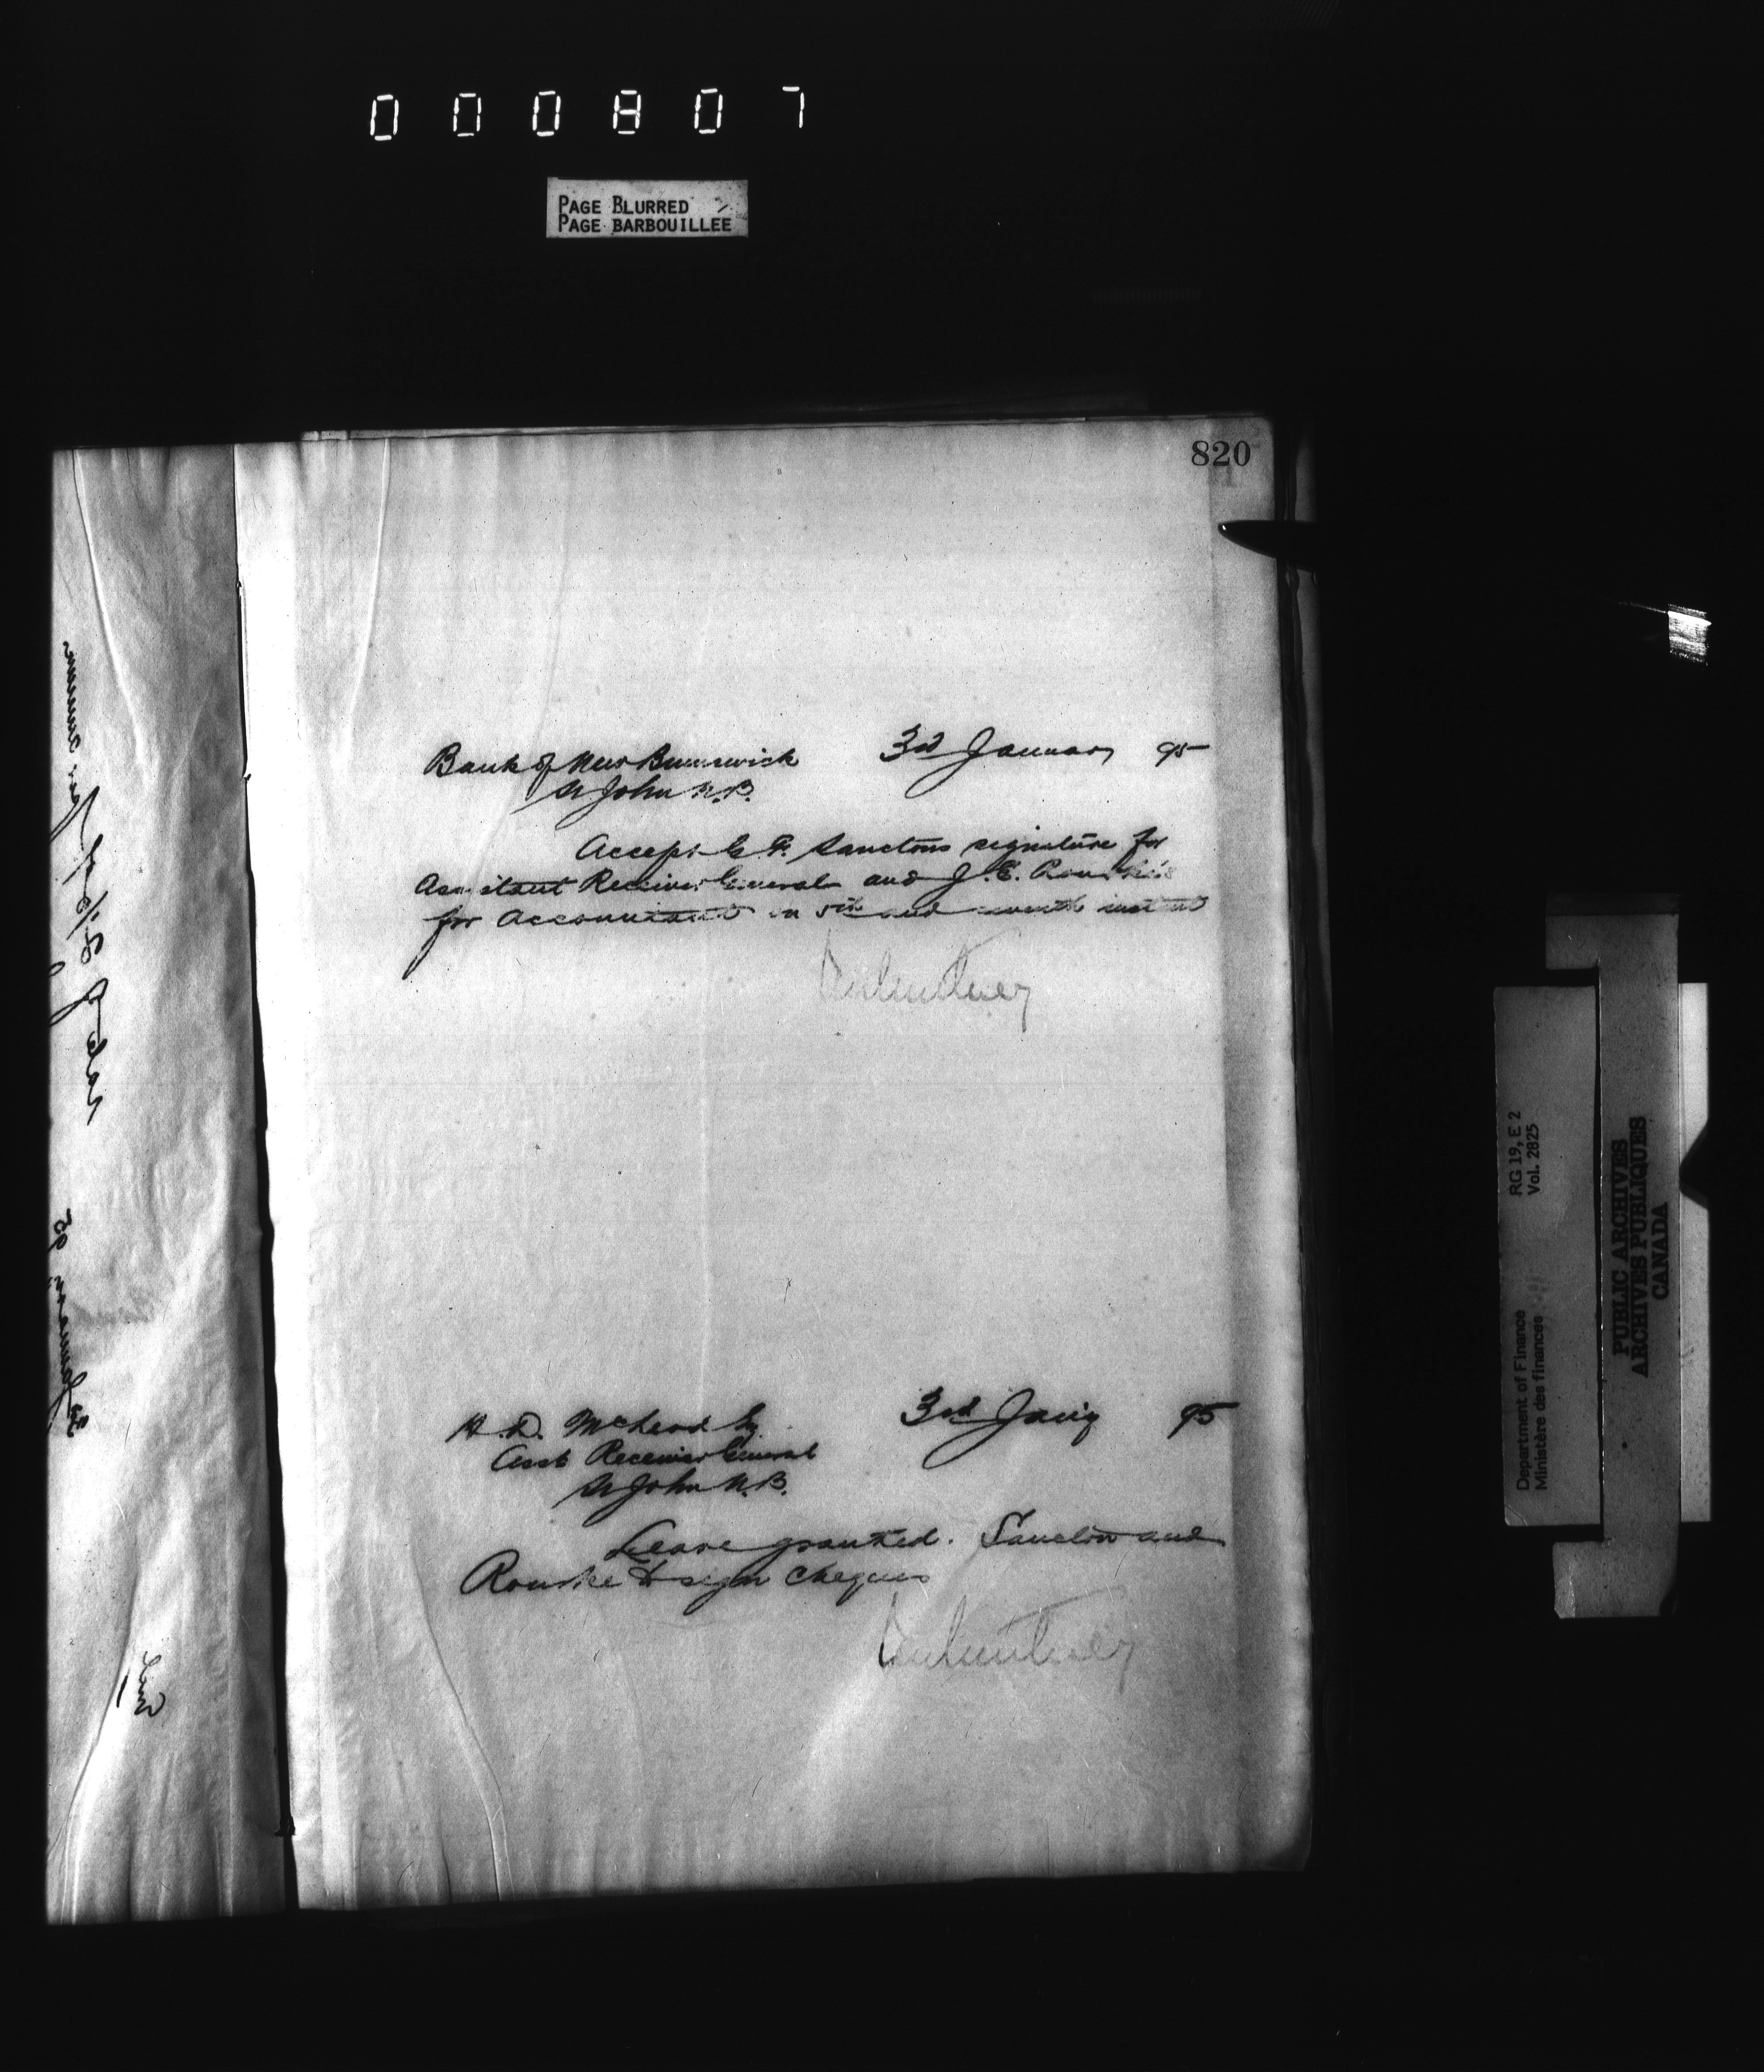 000807
PAGE BLURRED
PAGE BARBOUILLÉE
820
Bank of New Brunswick 3rd January 95
St John N.B.
Accept G. F. Sanctons signature for
Assistant Receiver General and J. E. Rourke's
for Accountant on 5th and seventh instant
H. D. McLeod Esq
Asst Receiver General 3rd Jan'y 95
St John N.B.
Leave granted. Sancton and
Rourke to sign cheques
RG 19, E 2
Vol. 2825
Department of Finance
Ministère des finances
PUBLIC ARCHIVES
ARCHIVES PUBLIQUES
CANADA